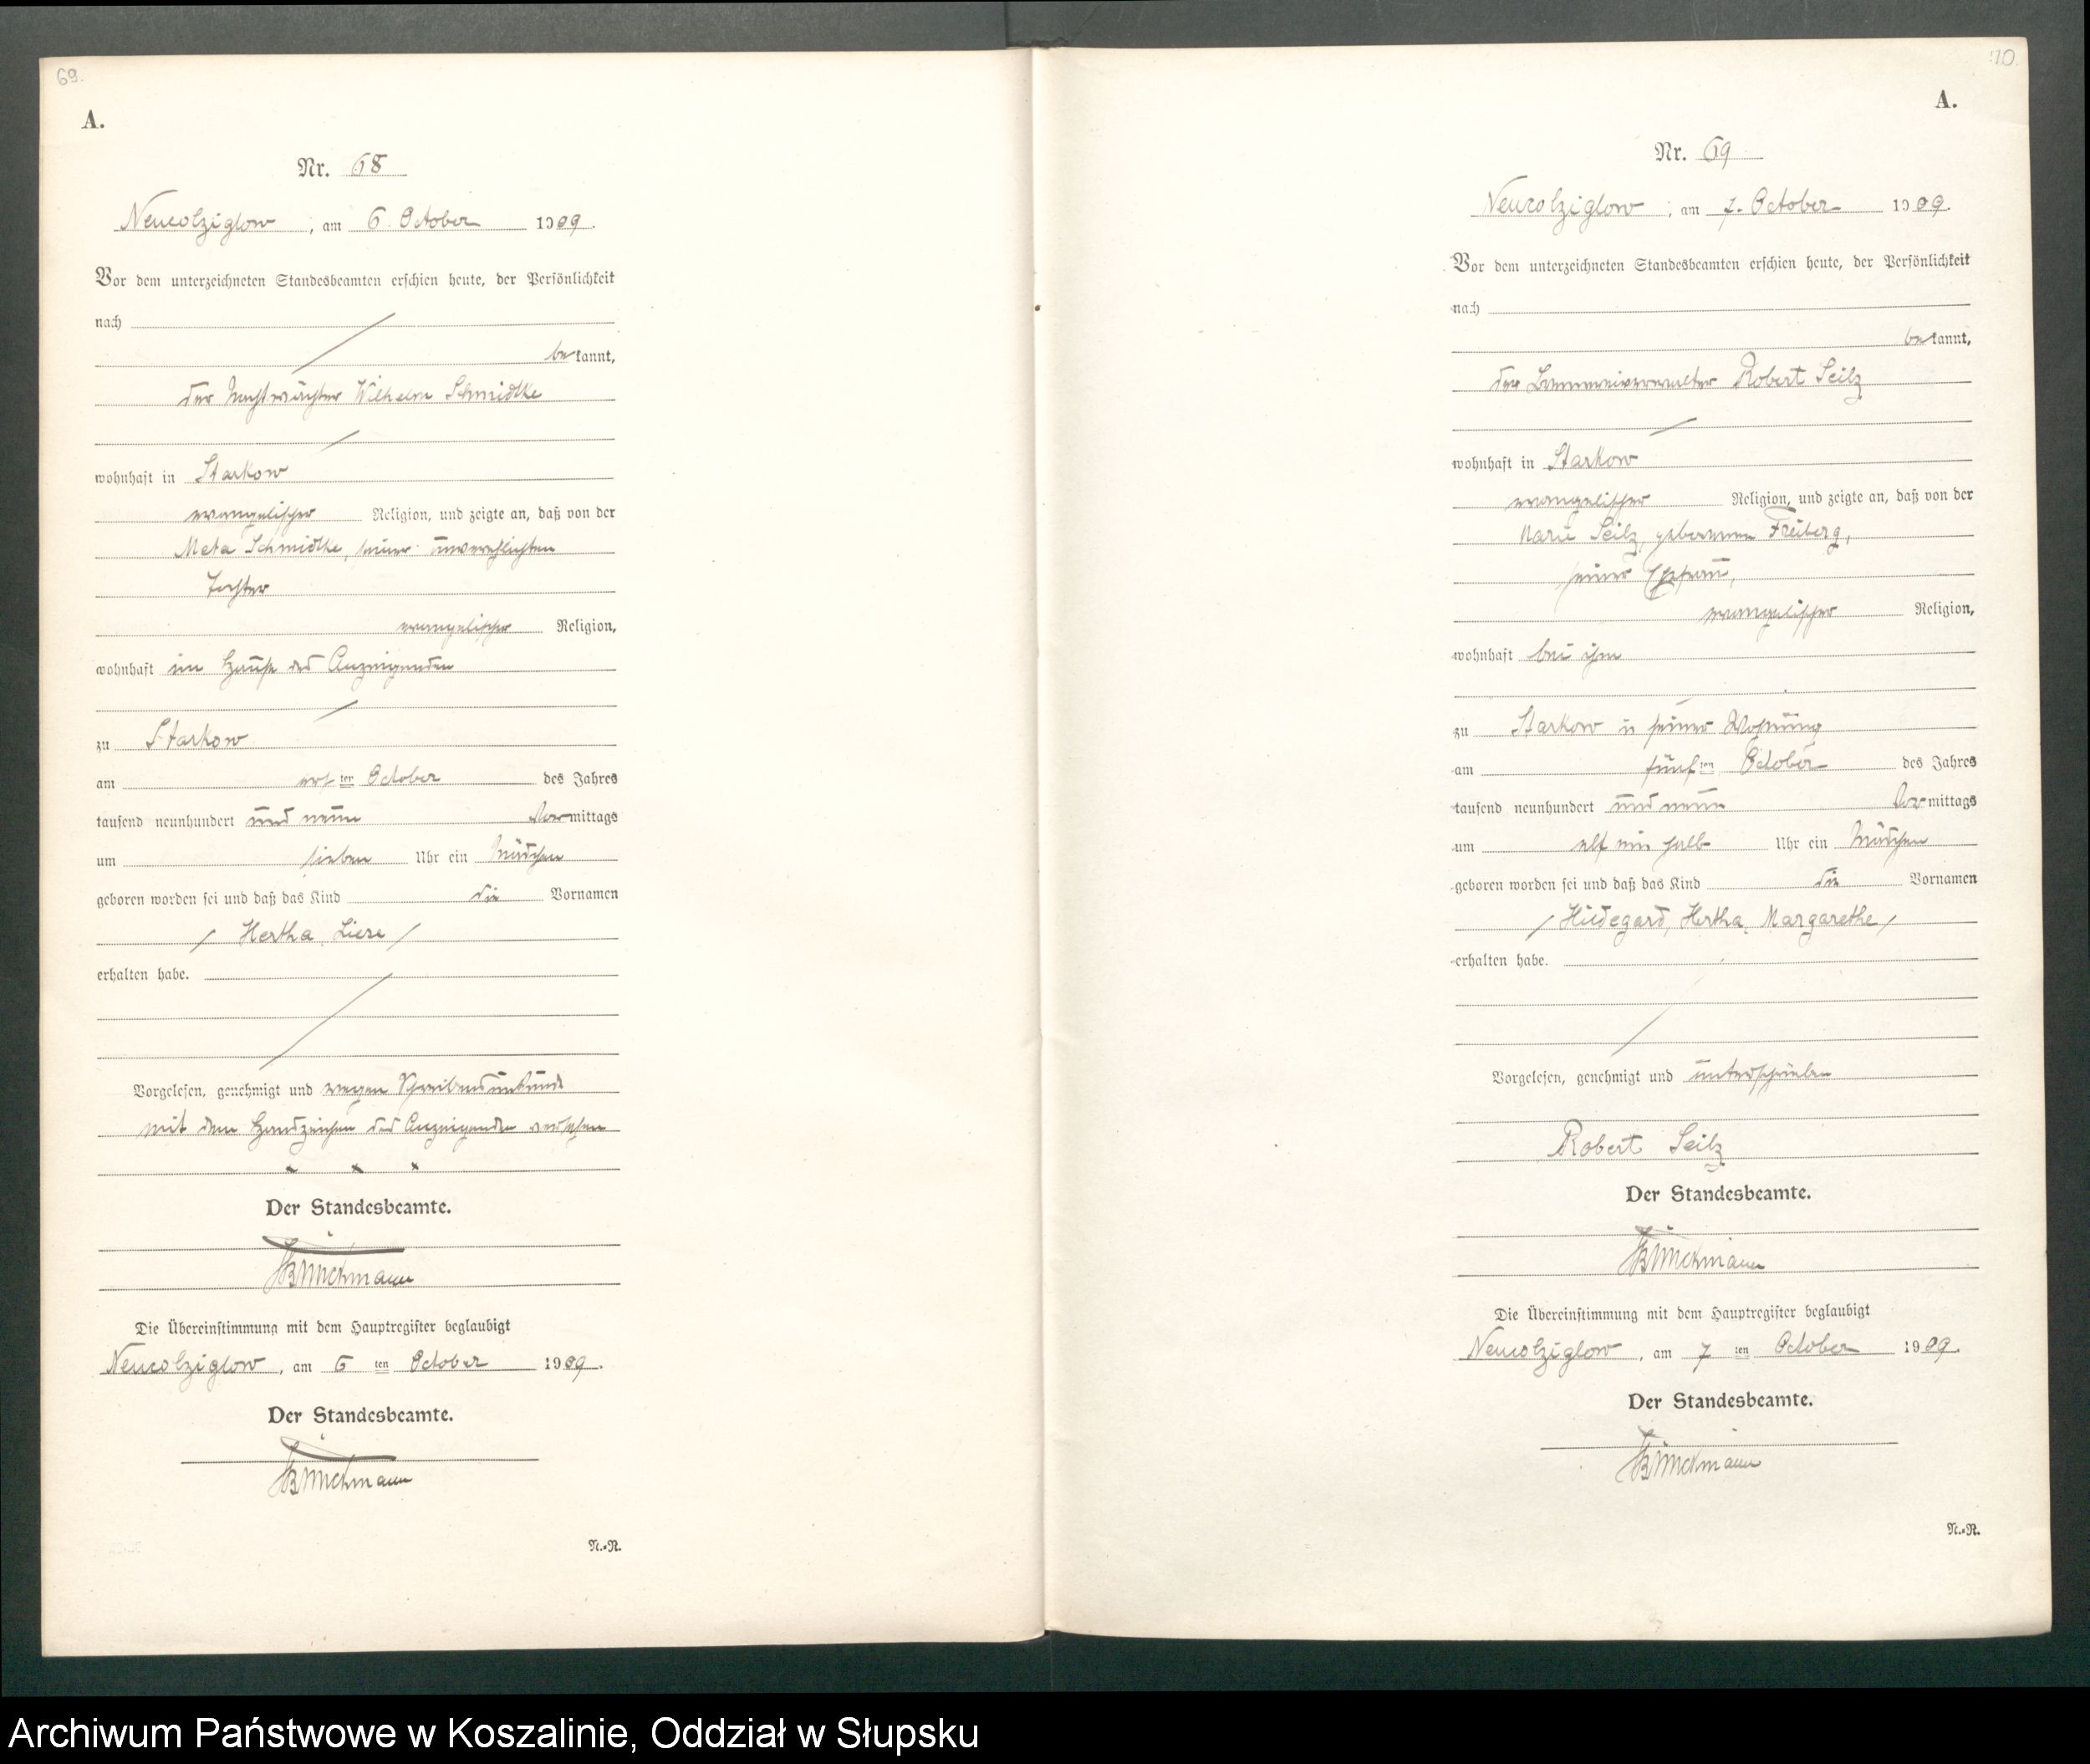 69.
A.
Nr. 68
Neukolziglow, am 6. October 1909.
Vor dem unterzeichneten Standesbeamten erschien heute, der Persönlichkeit
nach
bekannt,
der Nachtwächter Wilhelm Schmidtke
wohnhaft in Starkow
evangelischer Religion, und zeigte an, daß von der
Meta Schmidtke, seiner unverehlichten
Tochter
evangelischer Religion,
wohnhaft im Hause des Anzeigenden
zu Starkow
am ersten October des Jahres
tausend neunhundert und neun Vormittags
um sieben Uhr ein Mädchen
geboren worden sei und daß das Kind die Vornamen
/ Hertha, Liese /
erhalten habe.
Vorgelesen, genehmigt und wegen Schreibensunkunde
mit dem Handzeichen des Anzeigenden versehen
x x x
Der Standesbeamte.
Brünckmann
Die Übereinstimmung mit dem Hauptregister beglaubigt
Neukolziglow, am 6ten October 1909.
Der Standesbeamte.
Brünckmann
N.=N.
70.
A.
Nr. 69
Neukolziglow, am 7. October 1909.
Vor dem unterzeichneten Standesbeamten erschien heute, der Persönlichkeit
nach
bekannt,
der Robert Seilz
wohnhaft in Starkow
evangelischer Religion, und zeigte an, daß von der
Marie Seilz, geborenen Freiberg,
seiner Ehefrau,
evangelischer Religion,
wohnhaft bei ihm
zu Starkow in seiner Wohnung
am fünften October des Jahres
tausend neunhundert und neun Vormittags
um elf ein halb Uhr ein Mädchen
geboren worden sei und daß das Kind die Vornamen
/ Hildegard, Hertha, Margarethe /
erhalten habe.
Vorgelesen, genehmigt und unterschrieben
Robert Seilz
Der Standesbeamte.
Brünckmann
Die Übereinstimmung mit dem Hauptregister beglaubigt
Neukolziglow, am 7ten October 1909.
Der Standesbeamte.
Brünckmann
N.=N.
Archiwum Państwowe w Koszalinie, Oddział w Słupsku